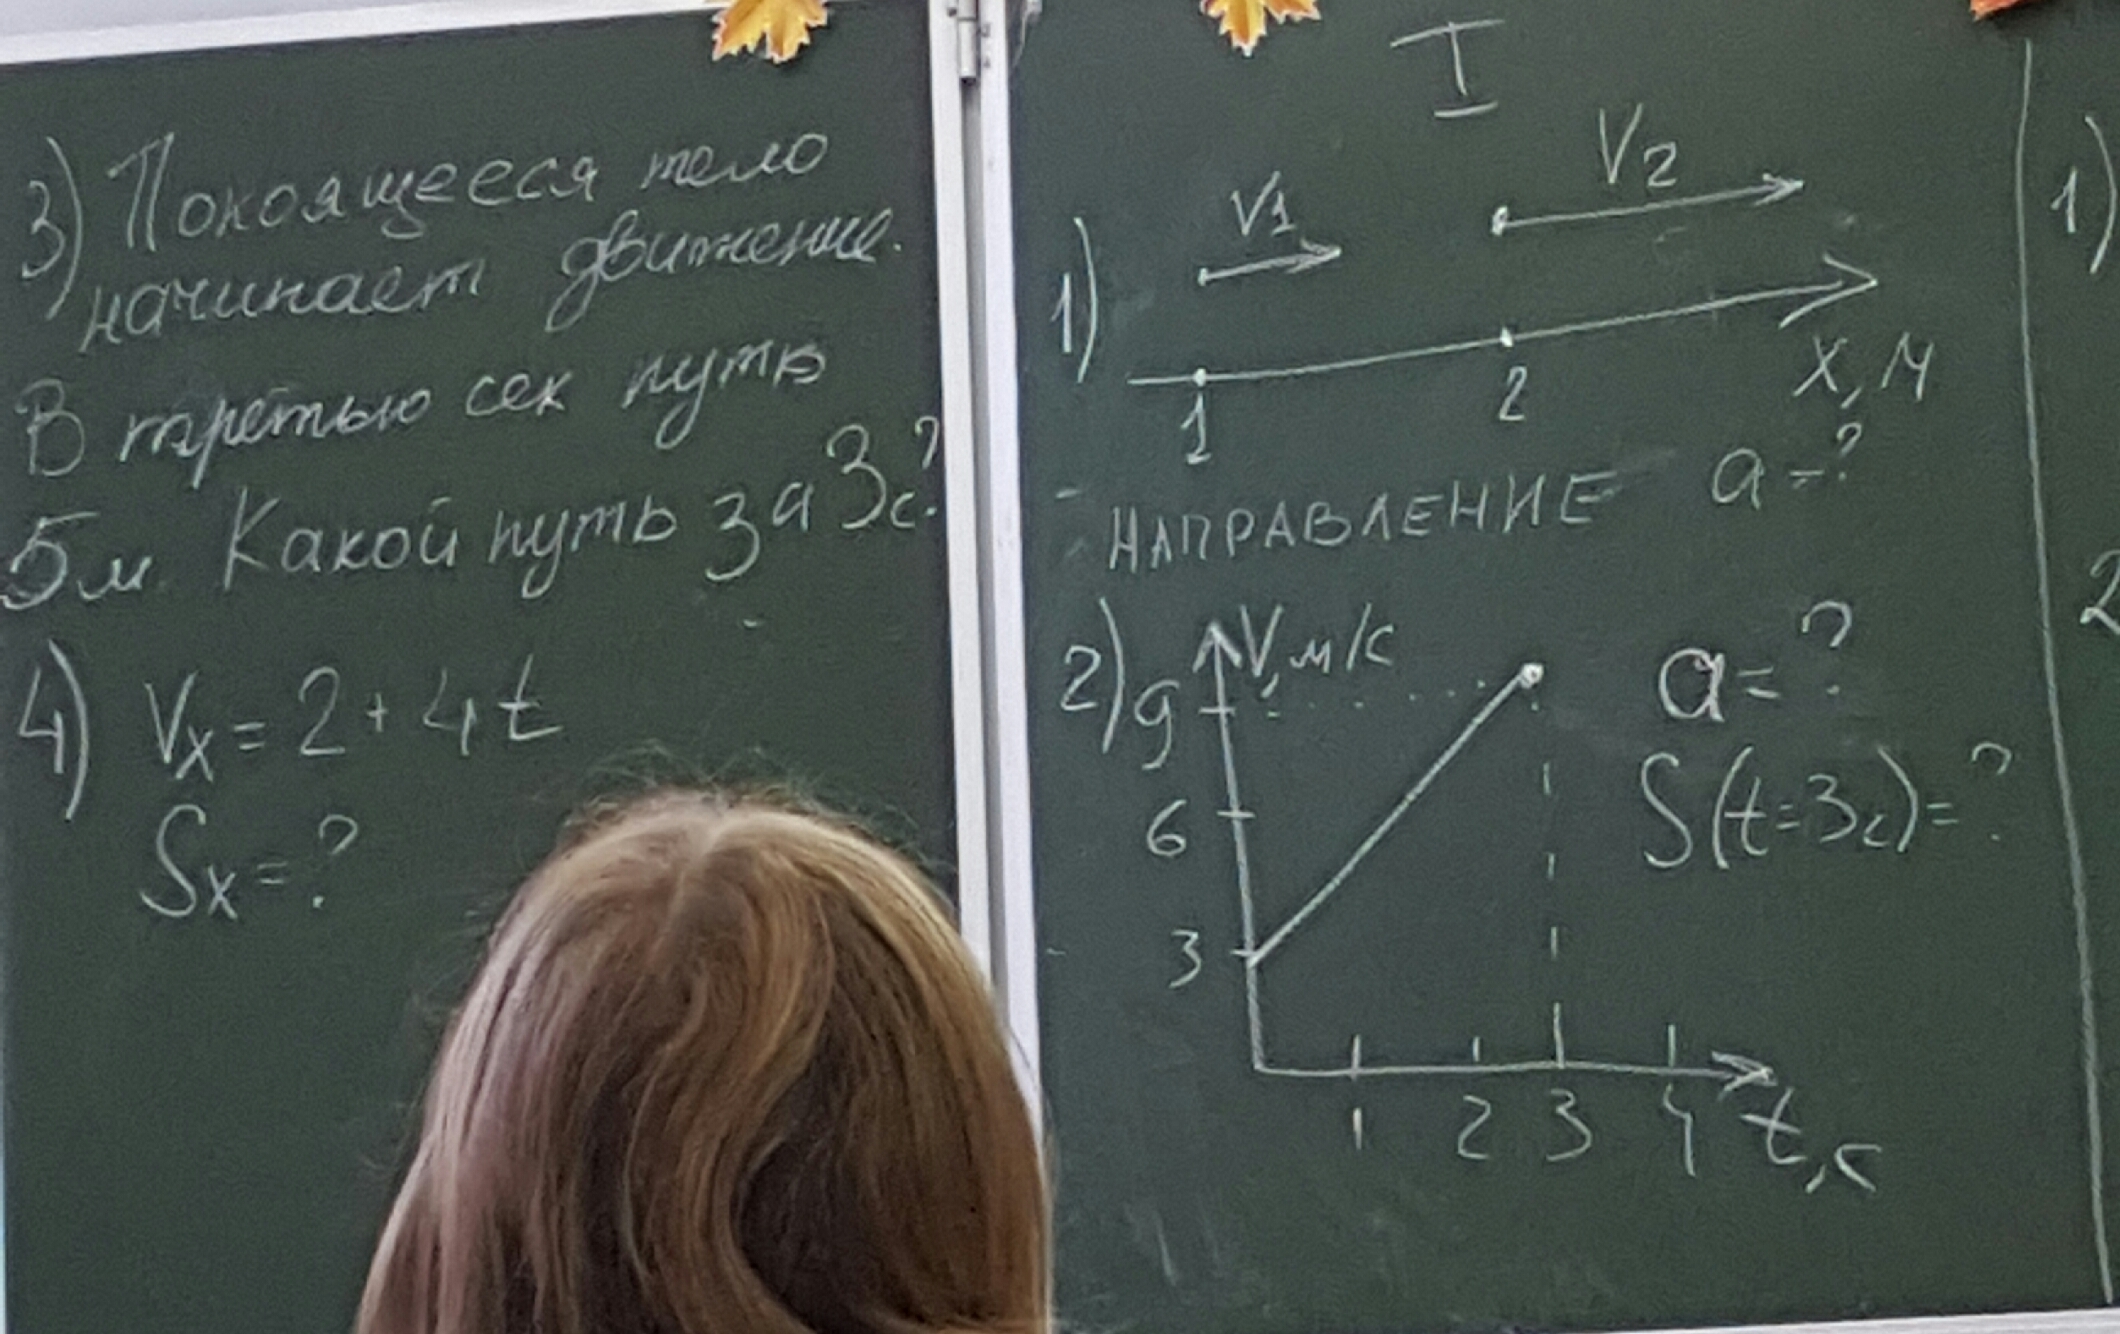 3) Покоящееся тело
начинает движение.
В третью сек путь
5м. Какой путь за 3с?
4) Vx = 2 + 4t
Sx = ?
I
1) V1 V2
1 2 X, М
НАПРАВЛЕНИЕ a - ?
2) V, м/с
9
6
3
1 2 3 4 t, с
a = ?
S(t=3с) = ?
1)
2